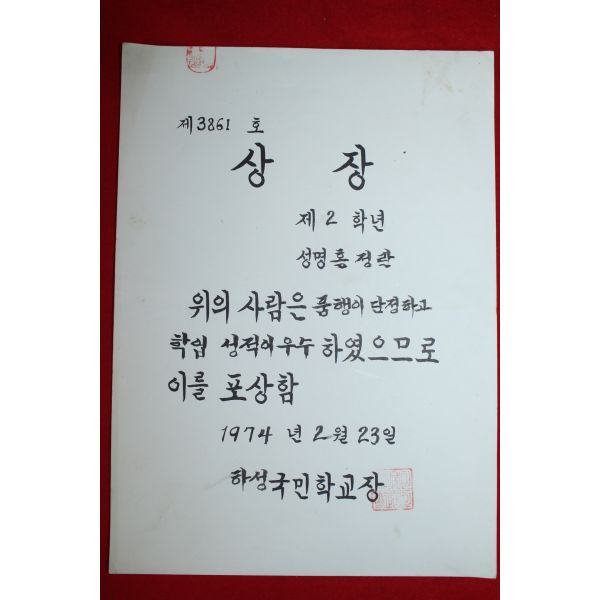 제3861 호
상 장
제 2 학년
성명 홍정란
위의 사람은 품행이 단정하고
학업 성적이 우수 하였으므로
이를 포상함
1974 년 2월 23일
하성국민학교장